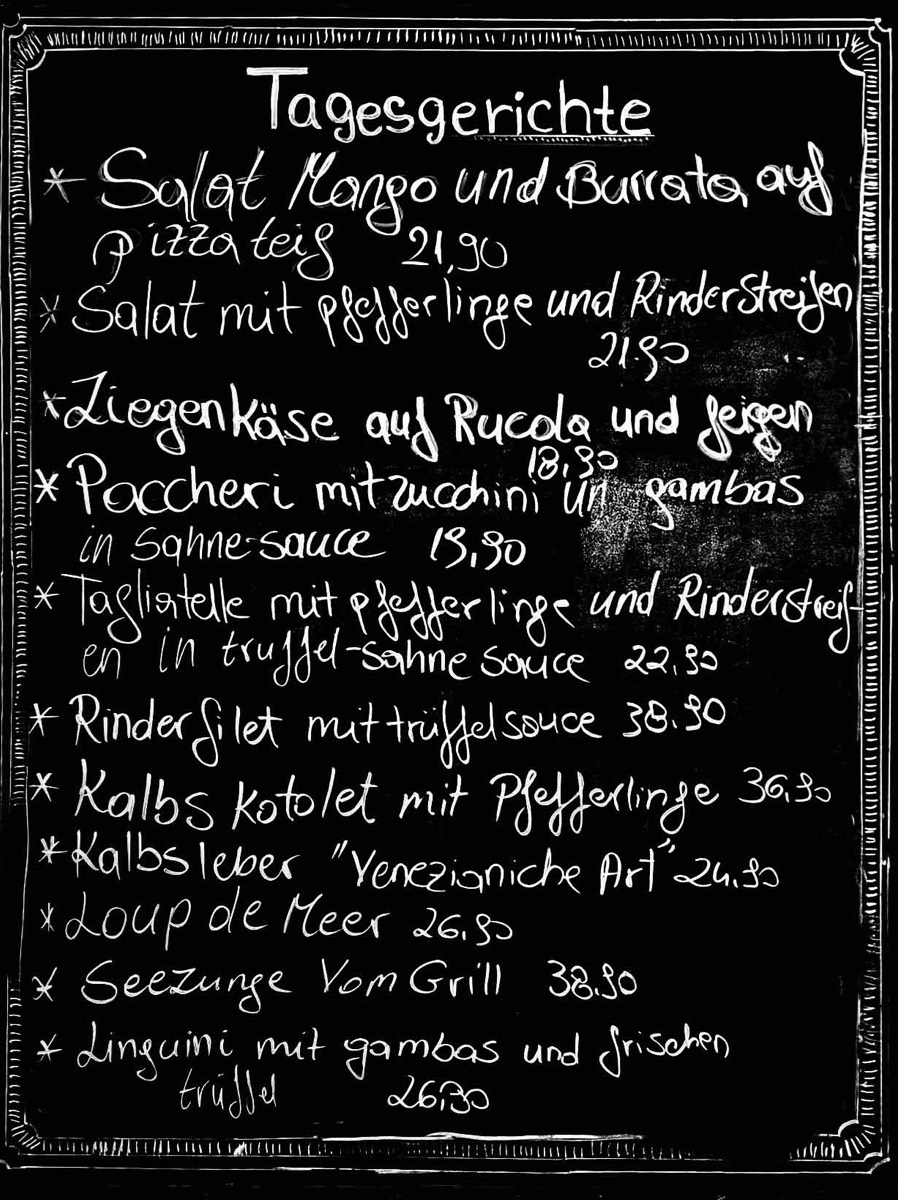 Tagesgerichte
* Salat Mango und Burrata auf
pizzateig 21,90
* Salat mit pfefferlinge und Rinderstreifen
21.90
* Ziegenkäse auf Rucola und feigen
18,90
* Paccheri mit zucchini un gambas
in Sahne-sauce 19,90
* Tagliatelle mit pfefferlinge und Rinderstreif-
en in truffel-Sahne sauce 22,90
* Rinderfilet mit trüffelsouce 38.90
* Kalbs kotolet mit Pfefferlinge 36,90
* Kalbsleber "Venezianiche Art" 24,90
* Loup de Meer 26,90
* Seezunge Vom Grill 38.90
* Linguini mit gambas und frischen
trüffel 26,90